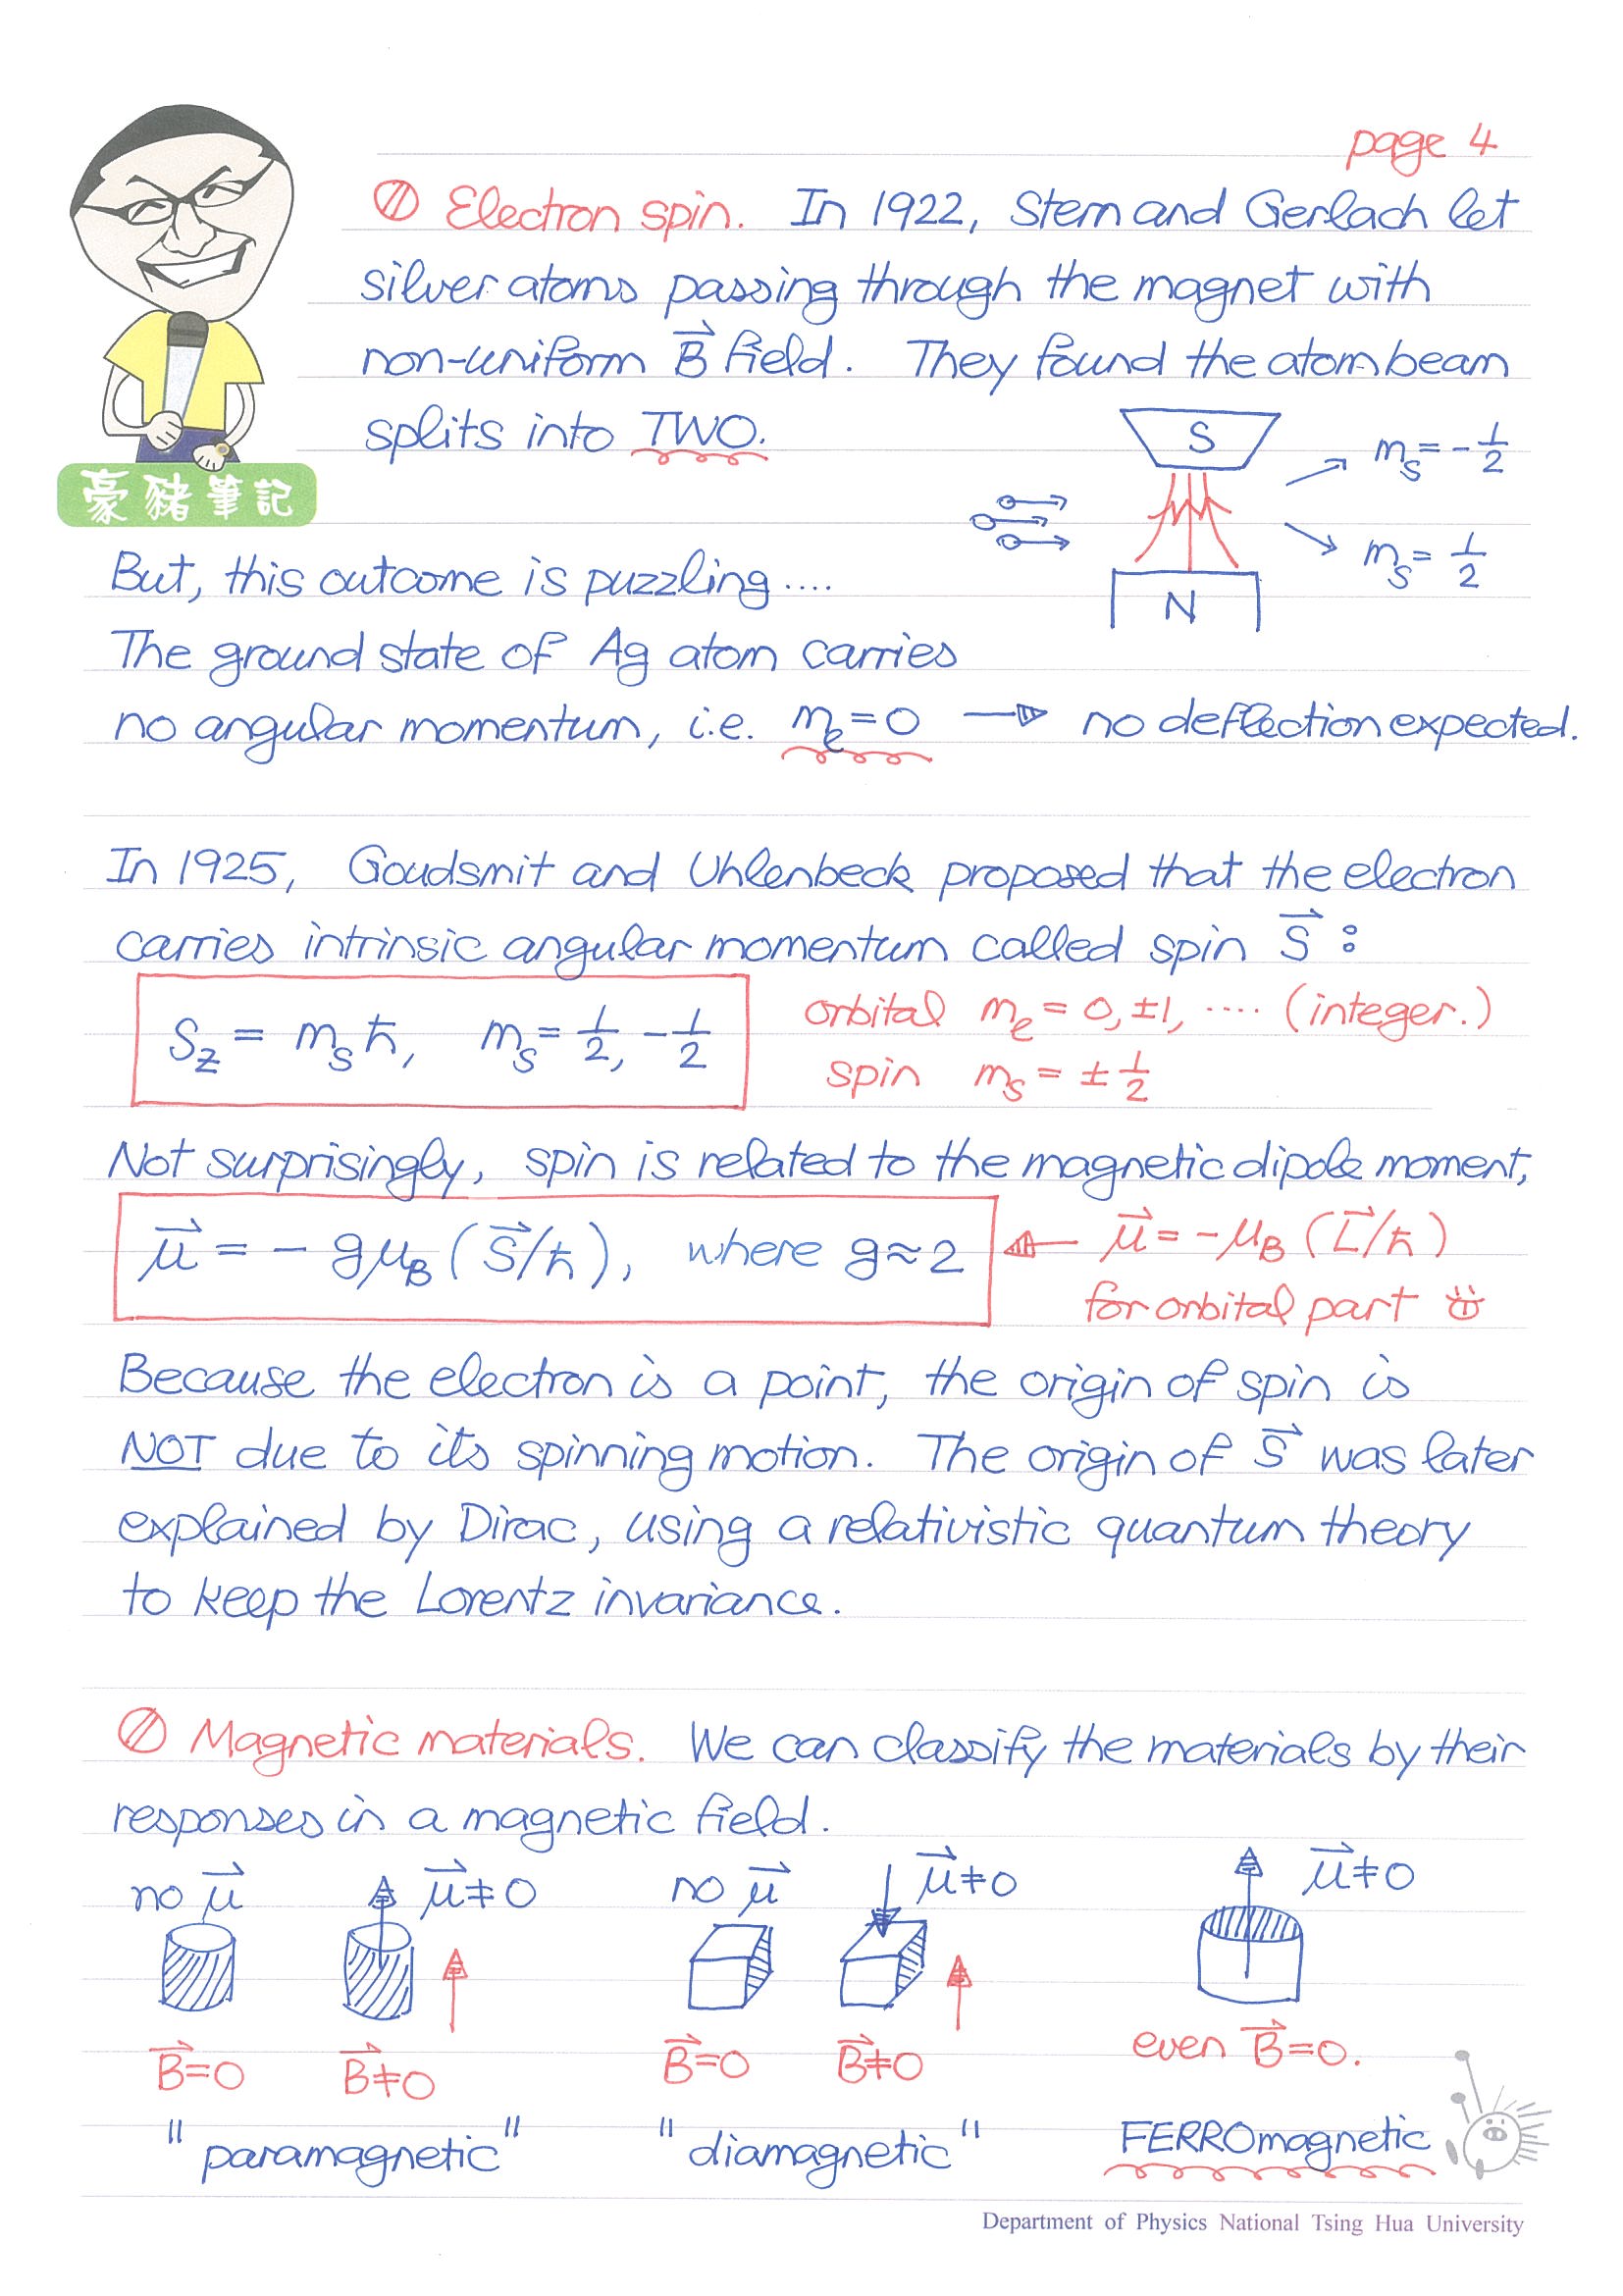 page 4
Electron spin. In 1922, Stern and Gerlach let
silver atoms passing through the magnet with
non-uniform B⃗ field. They found the atom beam
splits into TWO.
S
mₛ = -1/2
mₛ = 1/2
N
豪豬筆記
But, this outcome is puzzling ....
The ground state of Ag atom carries
no angular momentum, i.e. mₗ = 0 → no deflection expected.
In 1925, Goudsmit and Uhlenbeck proposed that the electron
carries intrinsic angular momentum called spin S⃗ :
S_z = mₛ ħ, mₛ = 1/2, -1/2
orbital mₗ = 0, ±1, .... (integer.)
spin mₛ = ± 1/2
Not surprisingly, spin is related to the magnetic dipole moment,
μ⃗ = - g μ_B (S⃗/ħ), where g ≈ 2
μ⃗ = -μ_B (L⃗/ħ)
for orbital part
Because the electron is a point, the origin of spin is
NOT due to its spinning motion. The origin of S⃗ was later
explained by Dirac, using a relativistic quantum theory
to keep the Lorentz invariance.
Magnetic materials. We can classify the materials by their
responses in a magnetic field.
no μ⃗ μ⃗≠0 no μ⃗ μ⃗≠0 μ⃗≠0
B⃗=0 B⃗≠0 B⃗=0 B⃗≠0 even B⃗=0.
"paramagnetic" "diamagnetic" FERROmagnetic
Department of Physics National Tsing Hua University